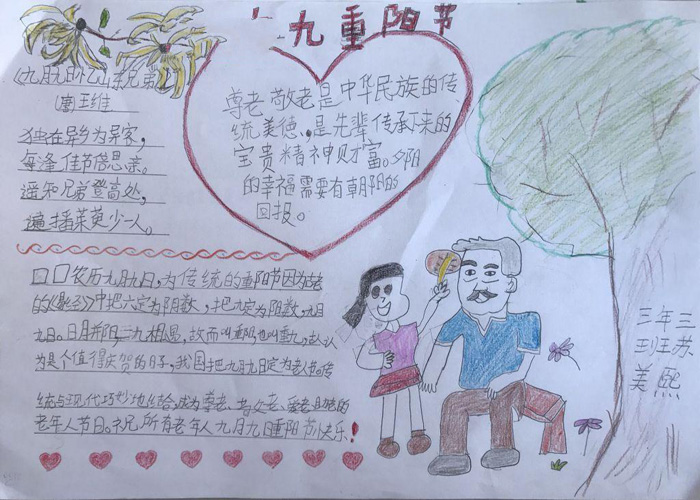 九重阳节
《九月九日忆山东兄弟
唐王维
独在异乡为异客，
每逢佳节倍思亲。
遥知兄弟登高处，
遍插茱萸少一人。
尊老敬老是中华民族的传
统美德，是先辈传承下来的
宝贵精神财富。夕阳
的幸福需要有朝阳的
回报。
农历九月九日，为传统的重阳节因为古老
的《易经》中把六定为阴数，把九定为阳数，九月
九日。日月并阳，二九相遇，故而叫重阳也叫重九，古人认
为是个值得庆贺的日子，我国把九月九日定为老人节。传
统与现代巧妙地结合，成为尊老、老、爱老的
老年人节日。祝所有老年人九月九重阳节快乐！
三年三
班苏
美熙